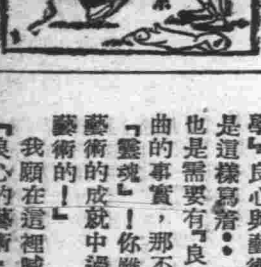 學』良心與藝術
是這樣寫着：
也是需要有『良
曲的事實，那不
『靈魂』！你雖
藝術的成就中過
藝術的！』
我願在這裡喊
『良心的藝術